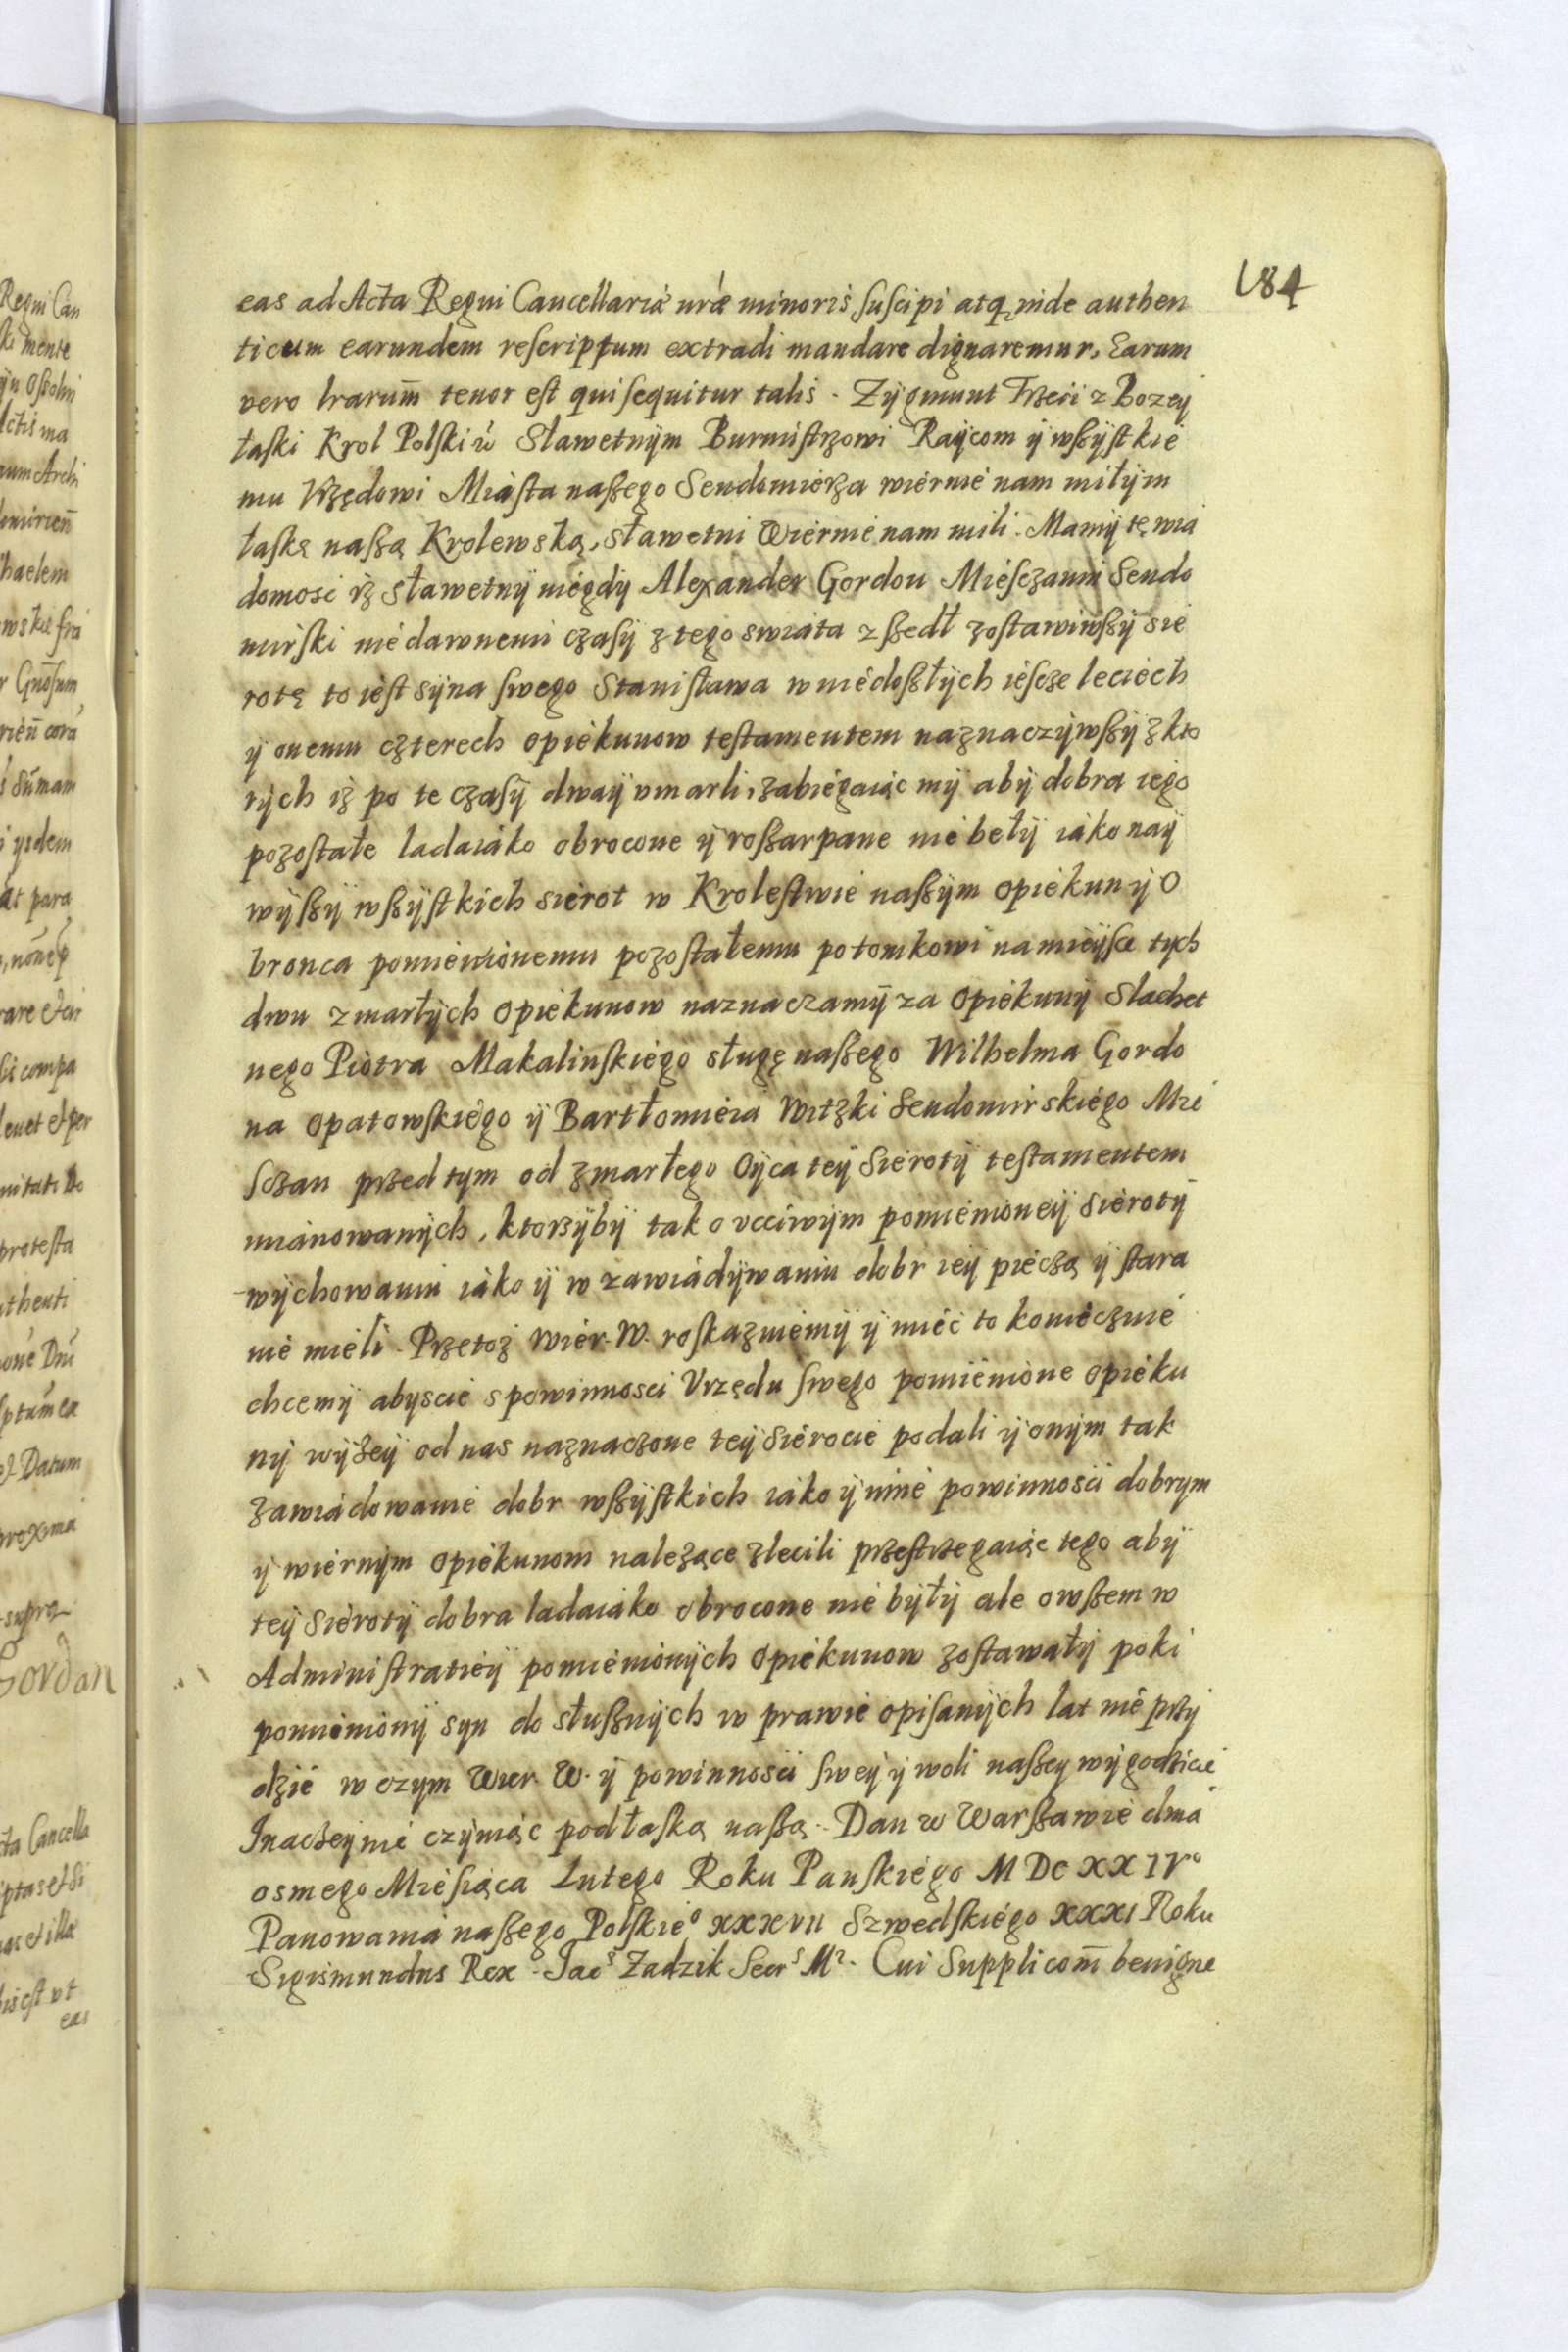 184
eas ad Acta Regni Cancellariæ nræ minoris suscipi atq inde authen
ticum earundem rescriptum extradi mandare dignaremur, Earum
vero lrarum̄ tenor est qui sequitur talis. Zÿgmunt Trzeci z Bozeÿ
łaski Krol Polski ú Sławetnÿm Burmistrzowi Raÿcom ÿ wszÿstkie
mu Vrzędowi Miasta naszego Sendomierza wiernie nam miłÿm
łaskę naszą Krolewską, Sławetni Wiernie nam mili. Mamÿ tę wia
domosc iż sławetnÿ niegdÿ Alexander Gordon Miesczanin Sendo
mirski niedawnemi czasÿ z tego swiata zszedł zostawiwszÿ sie
rotę to iest sÿna swego Stanisława w niedoszłÿch iescze leciech
ÿ onemu czterech opiekunow testamentem naznaczÿwszÿ z kto
rÿch iż po te czasÿ dwaÿ vmarli, zabiegaiąc mÿ abÿ dobra iego
pozostałe ladaiako obrocone ÿ roszarpane nie bełÿ iako naÿ
wÿszÿ wszÿstkich sierot w Krolestwie naszÿm opiekun ÿ O
bronca pomienionemu pozostałemu potomkowi na mieÿsce tych
dwu zmarłÿch opiekunow naznaczamÿ za opiekunÿ Slachet
nego Piotra Makalinskiego sługę naszego Wilhelma Gordo
na Opatowskiego ÿ Bartłomieia Witzki Sendomirskiego Mie
sczan przed tym od zmarłego Oÿca teÿ Sierotÿ testamentem
mianowanÿch, ktorzÿbÿ tak o vcciwÿm pomienioneÿ Sierotÿ
wÿchowaniu iako ÿ w zawiadÿwaniu dobr ieÿ pieczą ÿ stara
nie mieli. Przetoż Wier. W. roskazuiemÿ ÿ miéć to koniecznie
chcemÿ abyscie s powinnosci Vrzędu swego pomienione opieku
nÿ wÿżeÿ od nas naznaczone teÿ Sierocie podali ÿ onÿm tak
zawiadowanie dobr wszÿstkich iako ÿ inne powinnosci dobrym
ÿ wiernÿm opiekunom należące zlecili przestrzegaiąc tego abÿ
teÿ Sierotÿ dobra ladaiako obrocone nie bÿłÿ ale owszem w
Administratieÿ pomienionÿch Opiekunow zostawałÿ poki
pomienionÿ syn do słusznÿch w prawie opisanÿch lat nie przÿ
dzie w czym Wier. W. ÿ powinnosci sweÿ ÿ woli naszeÿ wÿgodzicie
Inaczeÿ nie czÿniąc pod łaską naszą. Dan w Warszawie dnia
osmego Miesiąca Lutego Roku Panskiego MDCXXIVº
Panowania naszego Polskieº XXXVII Szwedskiego XXXI Roku
Sigismundus Rex. Jacˢ Zadzik Secrˢ Mʳ. Cui Suppliconi benigne